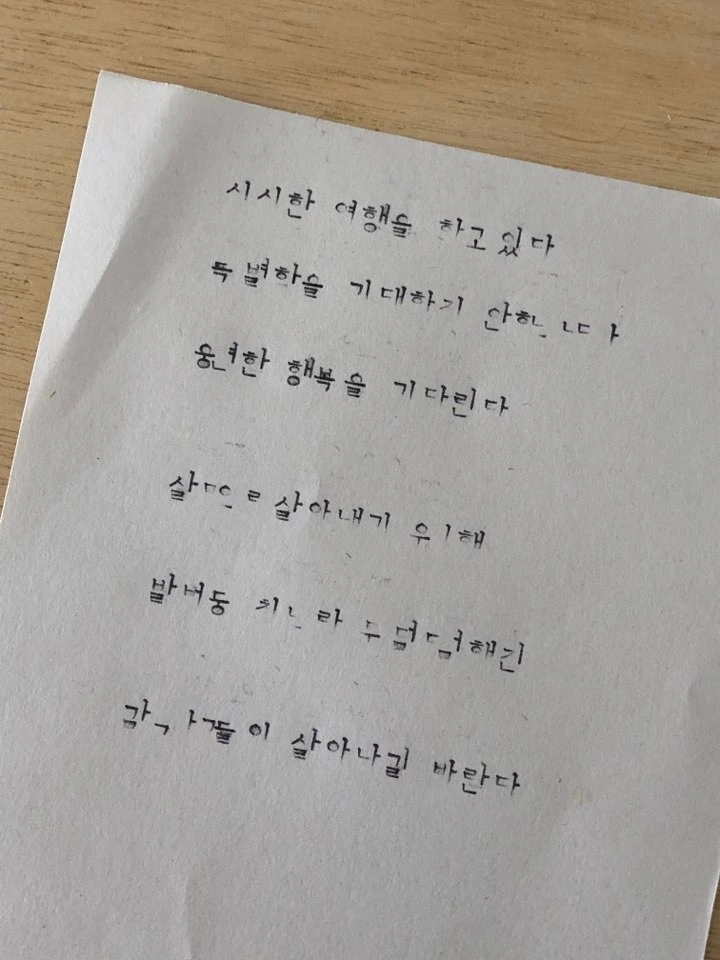 시시한 여행을 하고 있다
특별함을 기대하기 않는다
우연한 행복을 기다린다
삶을 살아내기 위해
발버둥 치느라 무덤덤해진
감각들이 살아나길 바란다